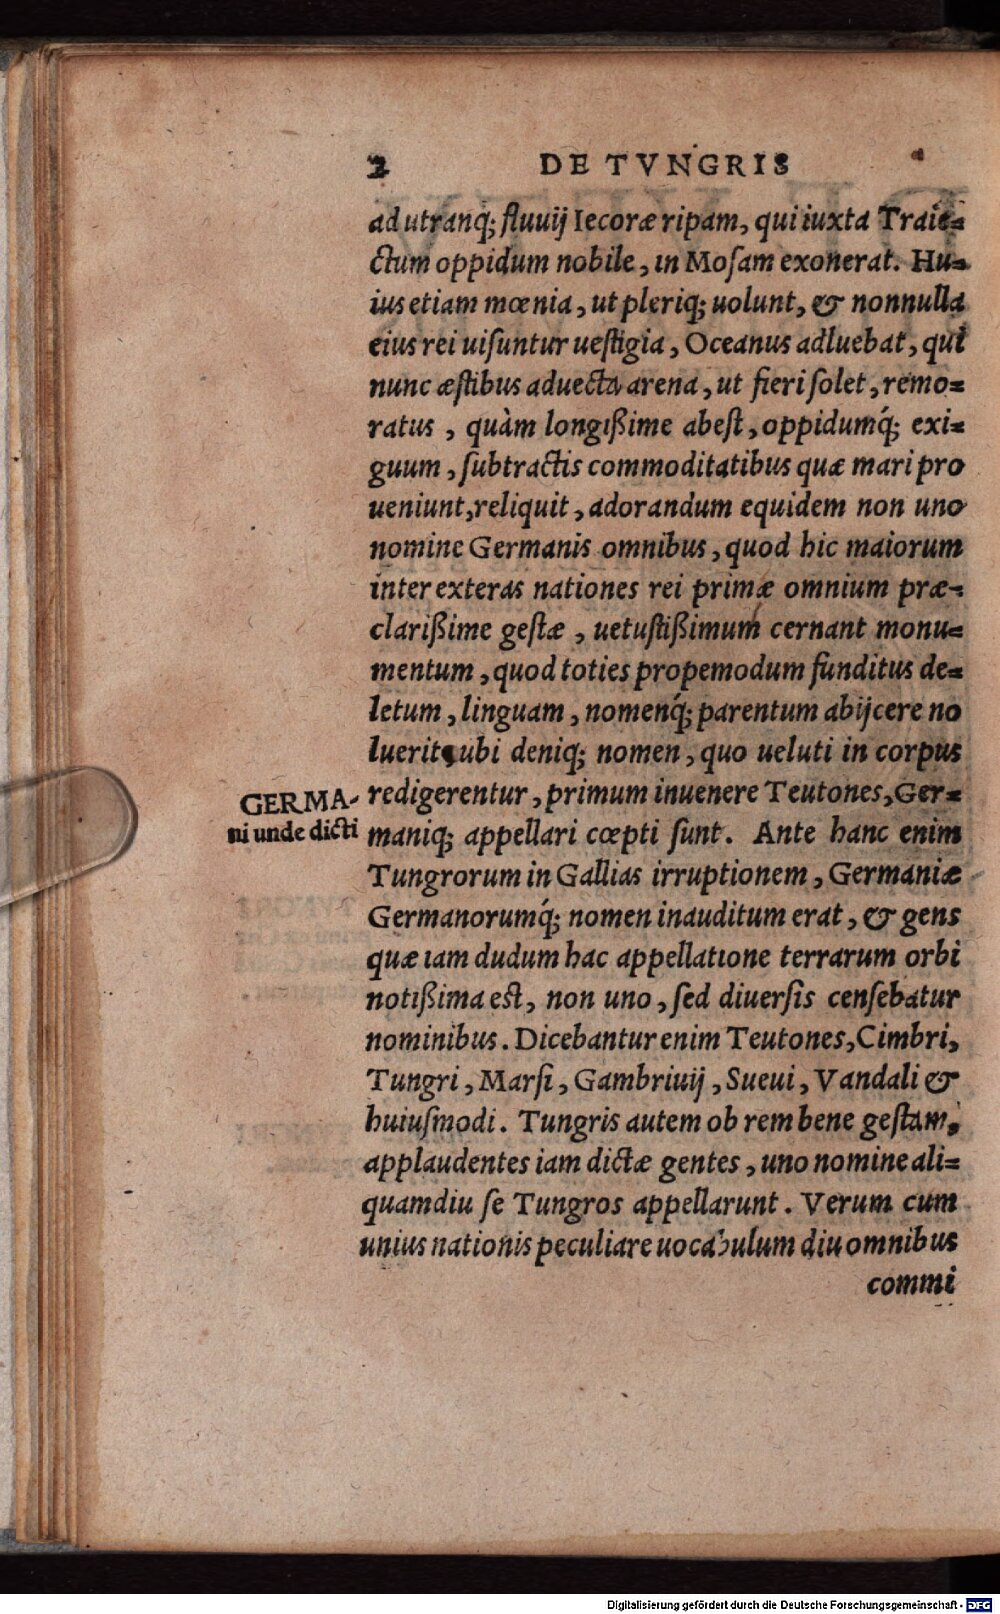 2 DE TVNGRIS
ad utranq; fluuij Iecoræ ripam, qui iuxta Traie=
ctum oppidum nobile, in Mosam exonerat. Hu=
ius etiam mœnia, ut pleriq; uolunt, & nonnulla
eius rei uisuntur uestigia, Oceanus adluebat, qui
nunc æstibus aduecta arena, ut fieri solet, remo=
ratus, quàm longißime abest, oppidumq́; exi=
guum, subtractis commoditatibus quæ mari pro
ueniunt, reliquit, adorandum equidem non uno
nomine Germanis omnibus, quod hic maiorum
inter exteras nationes rei primæ omnium præ=
clarißime gestæ, uetustißimum cernant monu=
mentum, quod toties propemodum funditus de=
letum, linguam, nomenq́; parentum abijcere no
luerit, ubi deniq; nomen, quo ueluti in corpus
redigerentur, primum inuenere Teutones, Ger=
maniq; appellari cœpti sunt. Ante hanc enim
Tungrorum in Gallias irruptionem, Germaniæ
Germanorumq́; nomen inauditum erat, & gens
quæ iam dudum hac appellatione terrarum orbi
notißima est, non uno, sed diuersis censebatur
nominibus. Dicebantur enim Teutones, Cimbri,
Tungri, Marsi, Gambriuij, Sueui, Vandali &
huiusmodi. Tungris autem ob rem bene gestam,
applaudentes iam dictæ gentes, uno nomine ali=
quamdiu se Tungros appellarunt. Verum cum
unius nationis peculiare uocabulum diu omnibus
commi
GERMA-
ni unde dicti
Digitalisierung gefördert durch die Deutsche Forschungsgemeinschaft - DFG